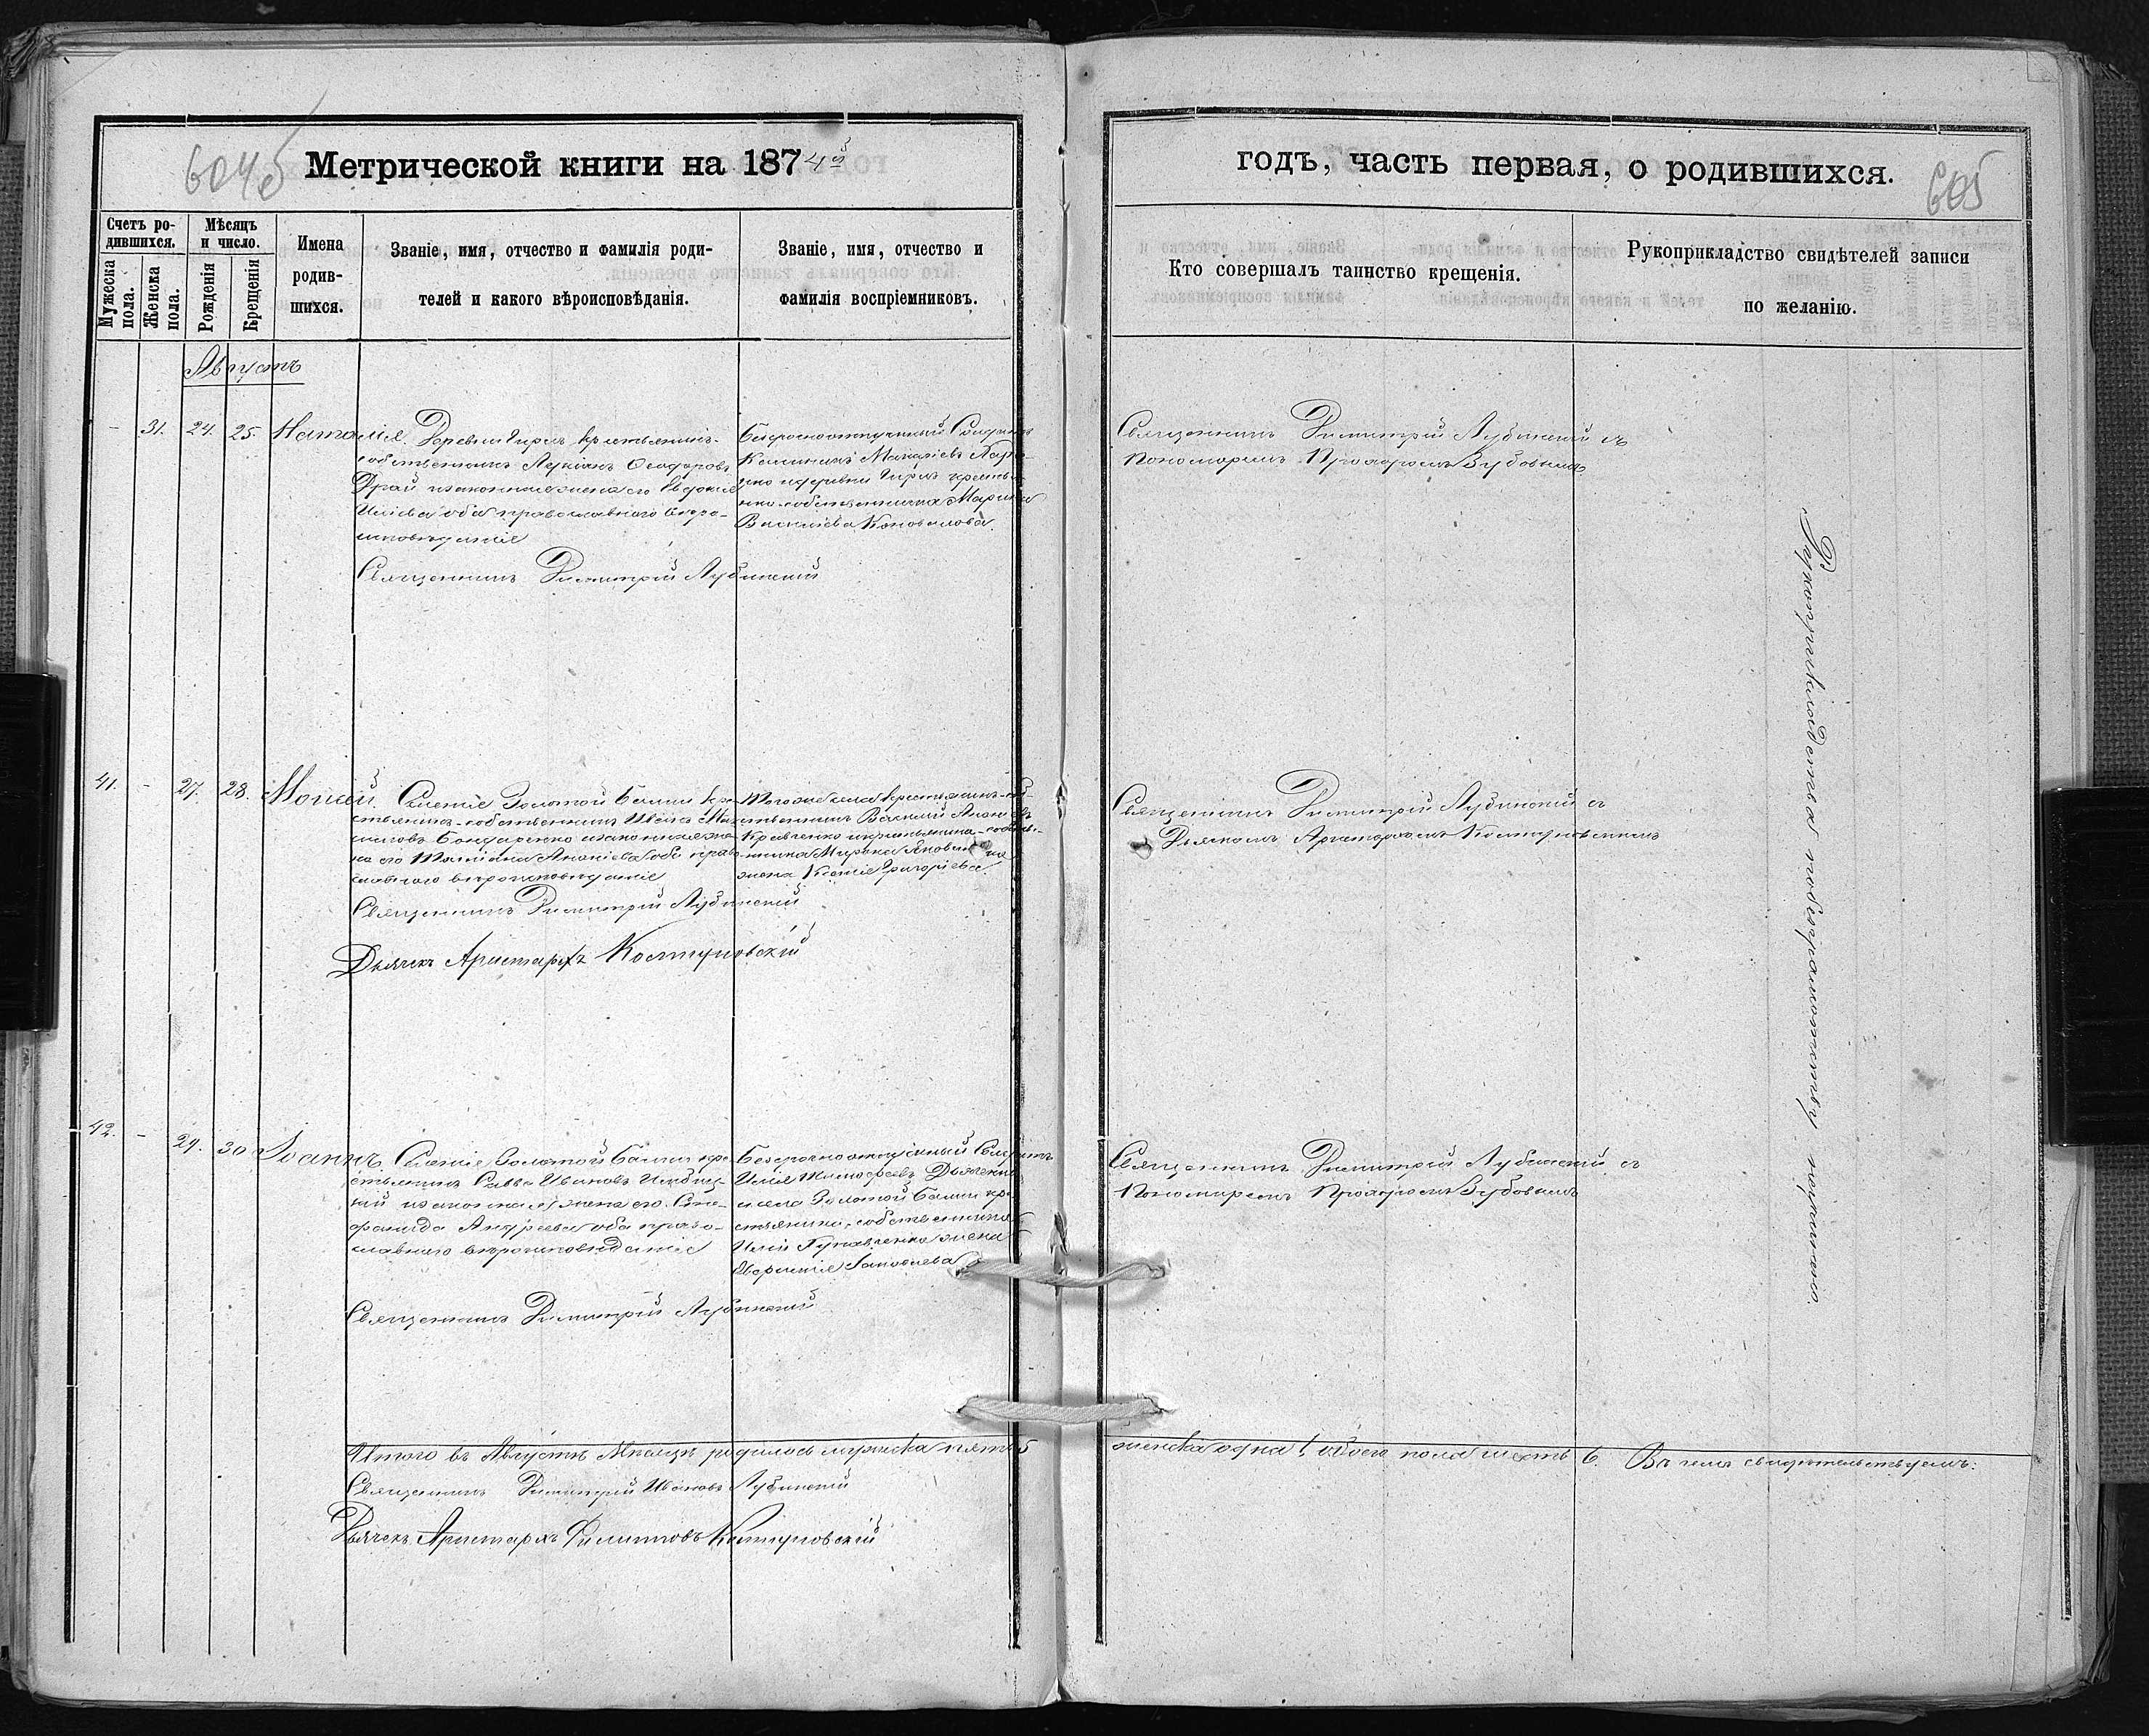 604б
Метрической книги на 1874й
годъ, часть первая, о родившихся.
605
Счетъ ро-
дившихся.
Мужеска
пола.
Женска
пола.
Мѣсяцъ
и число.
Рожденія
Крещенія
Имена
родив-
шихся.
Званіе, имя, отчество и фамилія роди-
телей и какого вѣроисповѣданія.
Званіе, имя, отчество и
фамилія воспріемниковъ.
Кто совершалъ таинство крещенія.
Рукоприкладство свидѣтелей записи
по желанію.
Августъ
— 31. 24. 25. Наталія.
Деревни крестьянинъ-
собственникъ Лукіанъ Ѳеодоровъ
и законная жена его Евдокія
Иліева оба православнаго вѣро-
исповѣданія
Священникъ Димитрій Лубинскій
Безсрочноотпускный Солдатъ
деревни крестья-
нка-собственника Марина
Василіева Коновалова.
Священникъ Димитрій Лубинскій съ
Пономаремъ Прохоромъ Зубовымъ
41. — 27. 28. Моисей
Селенія Золотой Балки кре-
стьянинъ-собственникъ
Бондаренко и законная же-
на его Татіана Ананіева оба право-
славнаго вѣроисповѣданія
Священникъ Димитрій Лубинскій
Дьячекъ Аристархъ Костуновскій
Тогоже села крестьянинъ-соб-
ственникъ Василій
Кравченко и крестьянина-собстве-
нника Яковл
жена Ксенія Григоріева.
Священникъ Димитрій Лубинскій съ
Дьячкомъ Аристархомъ Костуновскимъ
42. — 29. 30 Іоаннъ.
Селенія Золотой Балки кре-
стьянинъ Савва Ивановъ
кій и законная жена его Сте-
фанида Андреева оба право-
славнаго вѣроисповѣданія
Священникъ Димитрій Лубинскій
Безсрочноотпускный Солдатъ
Илія Тимофеевъ Дьяченко
и села Золотой Балки кре-
стьянина-собственника
Иліи жена
Евфимія Яковлева
Священникъ Димитрій Лубинскій съ
Пономаремъ Прохоромъ Зубовымъ
Рукоприкладства по безграмотству не учинено.
Итого въ Августѣ Мѣсяцѣ родилось мужеска пять 5
женска одна 1, обоего пола шесть 6. Въ чемъ свидѣтельствуемъ:
Священникъ Димитрій Ивановъ Лубинскій
Дьячекъ Аристархъ Филиповъ Костуновскій